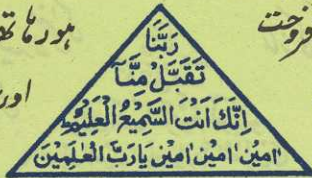 فروخت
ہور
اور
رَبَّنَا
تَقَبَّلْ مِنَّآ
اِنَّكَ اَنْتَ السَّمِيْعُ الْعَلِيْمُ
اٰمِيْن اٰمِيْن اٰمِيْن يَارَبَّ الْعٰلَمِيْنَ